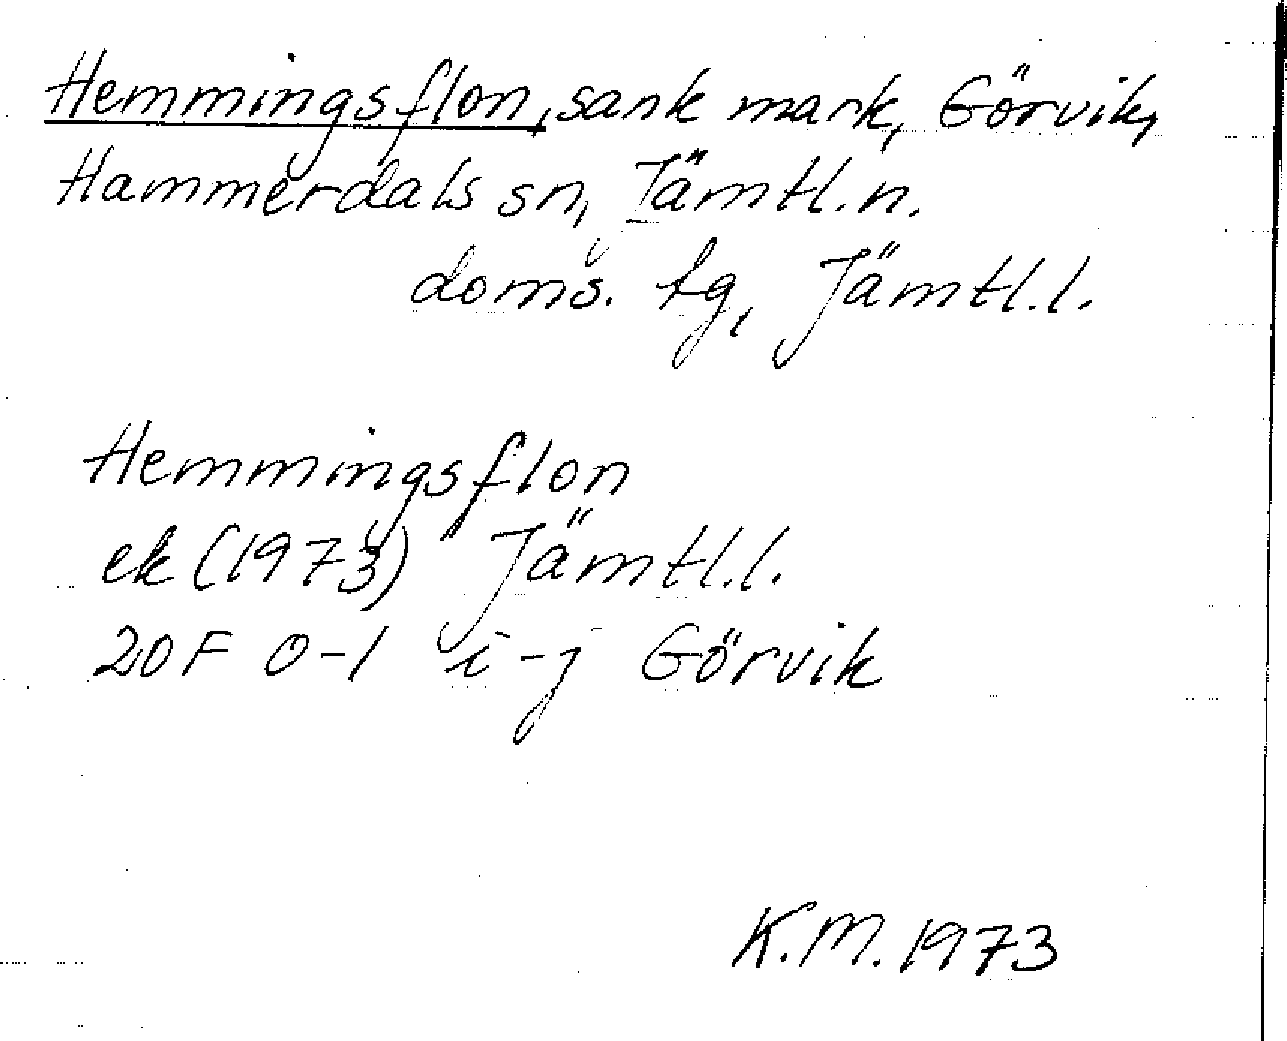 Hemmingsflon, sank mark, Görvik,
Hammerdals sn, Jämtl.n.
doms. tg, Jämtl.l.
Hemmingsflon
ek (1973) Jämtl.l.
20F 0-1 i-j Görvik
K.M. 1973